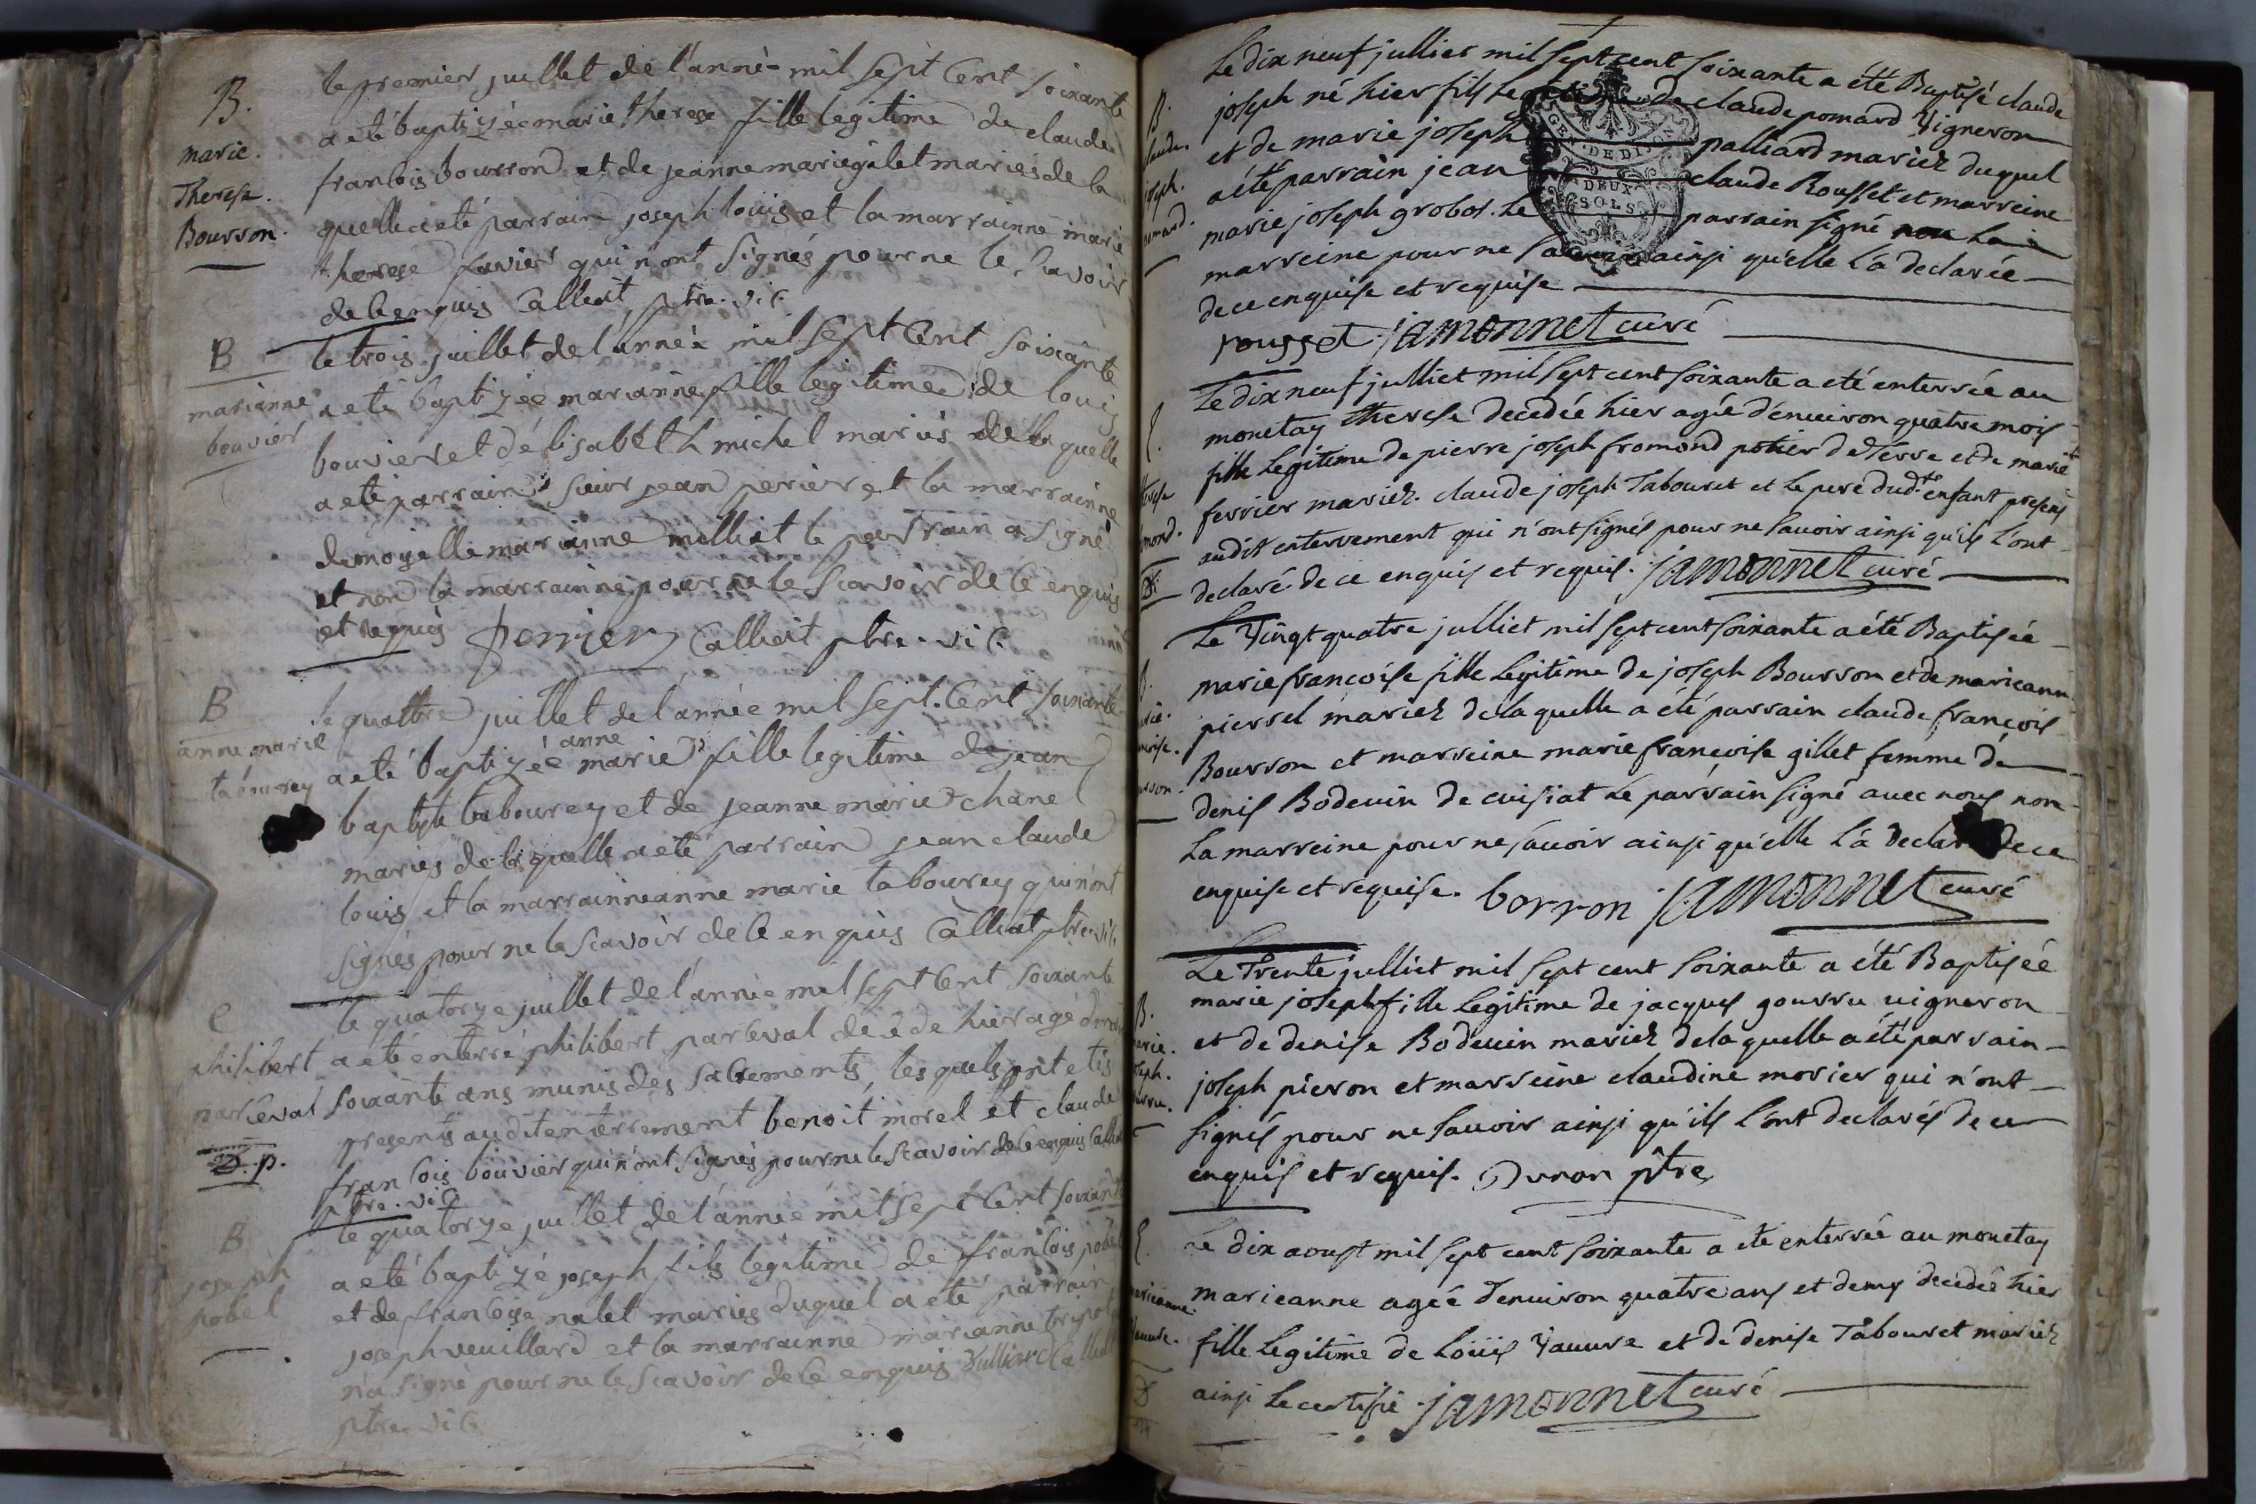 B.
marie.
Therese.
Bourron.
le premier juillet de l'anné mil sept Cent soixante
a eté baptizée marie therese fille legitime de claude
francois bourron et de jeanne marie gilet mariés de la
quelle a eté parrain joseph louis et la marrainne marie
therese favier qui n'ont signés pour ne le scavoir
de ce enquis Calliat ptre. vic.
B
marianne
bouvier
le trois juillet de l'année mil sept Cent soixante
a eté baptizée marianne fille legitime de louis
bouvier et d'elisabeth michel mariés de la quelle
a eté parrain sieur jean perier et la marrainne
demoizelle marianne milliat le parrain a signé
et non la marrainne pour ne le scavoir de ce enquis
et requis perrier Calliat ptre. vic.
B
anne marie
tabourey
le quattre juillet de l'année mil sept. Cent soixante
anne
a eté baptizée marie fille legitime de jean
baptiste tabourey et de jeanne marie chane
mariés de la quelle a eté parrain jean claude
louis et la marrainne anne marie tabourey qui n'ont
signés pour ne le scavoir de ce enquis Calliat ptre. vic.
e
philibert
parceval
D. p.
le quatorze juillet de l'année mil sept Cent soixante
a eté enterré philibert parceval décédé hier agé d'environ
soixante ans munis des sacrements, les quels ont etés
presents audit enterrement benoit morel et claude
francois bouvier qui n'ont signés pour ne le scavoir de ce enquis Calliat
ptre. vic
B
joseph
pobel
le quatorze juillet de l'année mil sept Cent soixante
a eté baptizé joseph fils legitime de francois pobel
et de francoise nalet mariés duquel a eté parrain
joseph veuillard et la marrainne marianne tripot
n'a signé pour ne le scavoir de ce enquis Vulliard Calliat
ptre. vic
B.
claude.
joseph.
pomard.
Le dix neuf julliet mil sept cent soixante a été Baptisé claude
joseph né hier fils legitime de claude pomard Vigneron
et de marie joseph palliard mariez duquel
a été parrain jean claude Rousset et marreine
marie joseph grobos. Le parrain signé non la
marreine pour ne savoir ainsi qu'elle l'a declarée
de ce enquise et requise
GEN. DE DIJON
DEUX
SOLS
rousset jamonnet curé
E.
therese
fromond.
Le dix neuf julliet mil sept cent soixante a eté enterrée au
monetay therese decedée hier agée d'enuiron quatre mois
fille legitime de pierre joseph fromond potier de Terre et de marie
fevrier mariez. claude joseph Tabouret et le pere dudt. enfant presens
audit enterrement qui n'ont signés pour ne sauoir ainsi qu'ils l'ont
declaré de ce enquis et requis. jamonnet curé
B.
marie.
francoise.
bourson.
Le Vingt quatre julliet mil sept cent soixante a été Baptisée
marie francoise fille legitime de joseph Bourson et de marieanne
pierrel mariez de la quelle a été parrain claude francois
Bourson et marreine marie francoise gillet femme de
denis Bodeuin de cuisiat le parrain signé auec nous non
La marreine pour ne sauoir ainsi qu'elle l'a declaré de ce
enquise et requise. borron jamonnet curé
B.
marie.
joseph.
gourru.
Le Trente julliet mil sept cent soixante a été Baptisée
marie joseph fille legitime de jacques gourru uigneron
et de denise Bodeuin mariez de la quelle a été parrain
joseph pieron et marreine claudine morier qui n'ont
signés pour ne sauoir ainsi qu'ils l'ont declarés de ce
enquis et requis. Dunon ptre
E.
marieanne.
Vauure.
Le dix aoust mil sept cent soixante a été enterrée au monetay
marieanne agée d'enuiron quatre ans et demy decedée hier
fille legitime de Loüis Vauure et de denise Tabouret mariez
ainsi Le certifie jamonnet curé